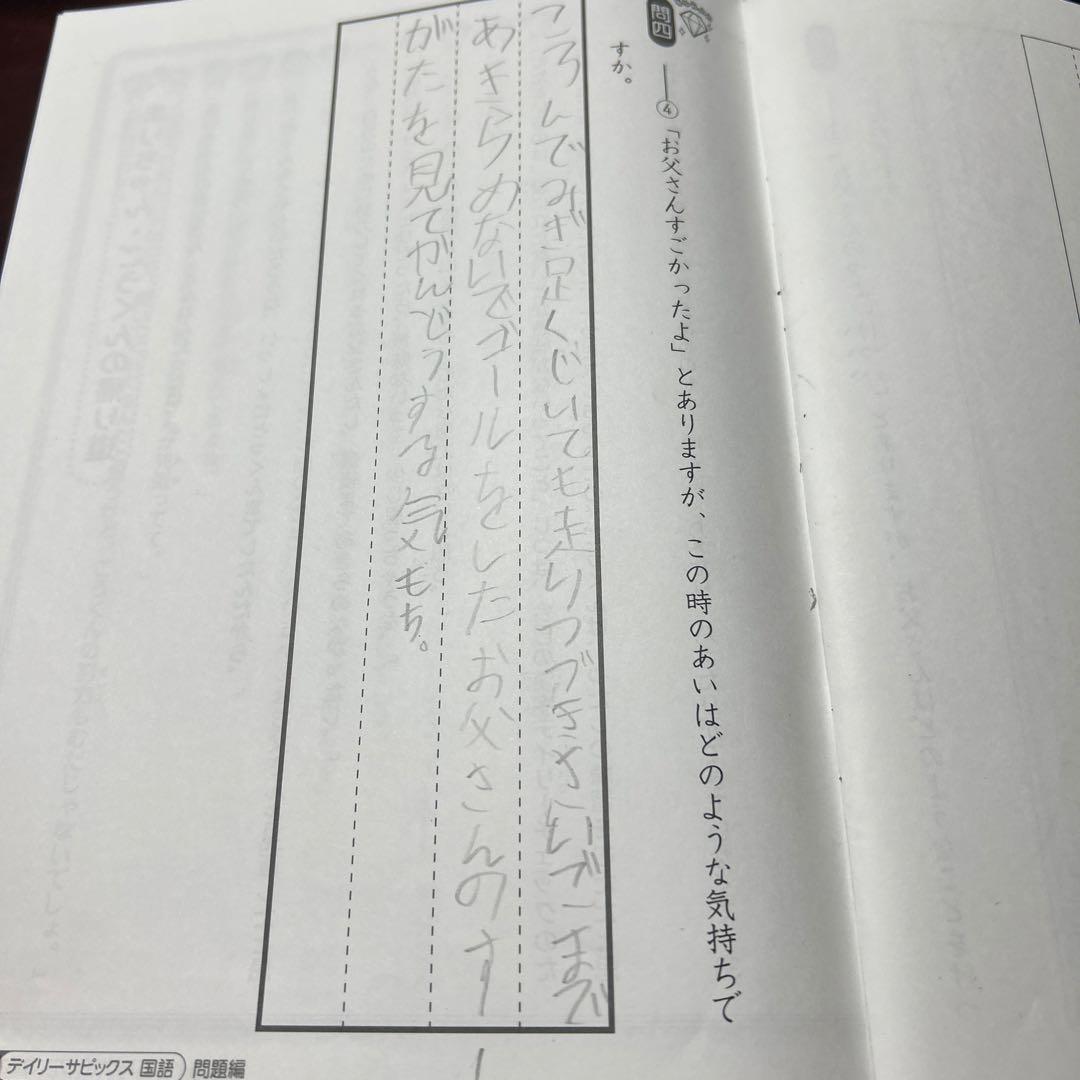 問四
④「お父さんすごかったよ」とありますが、この時のあいはどのような気持ちで
すか。
ころんでみぎ足くじいても走りつづきさいごまで
あきらめないでゴールをしたお父さんのす
がたを見てかんどうする気もち。
デイリーサピックス 国語 問題編